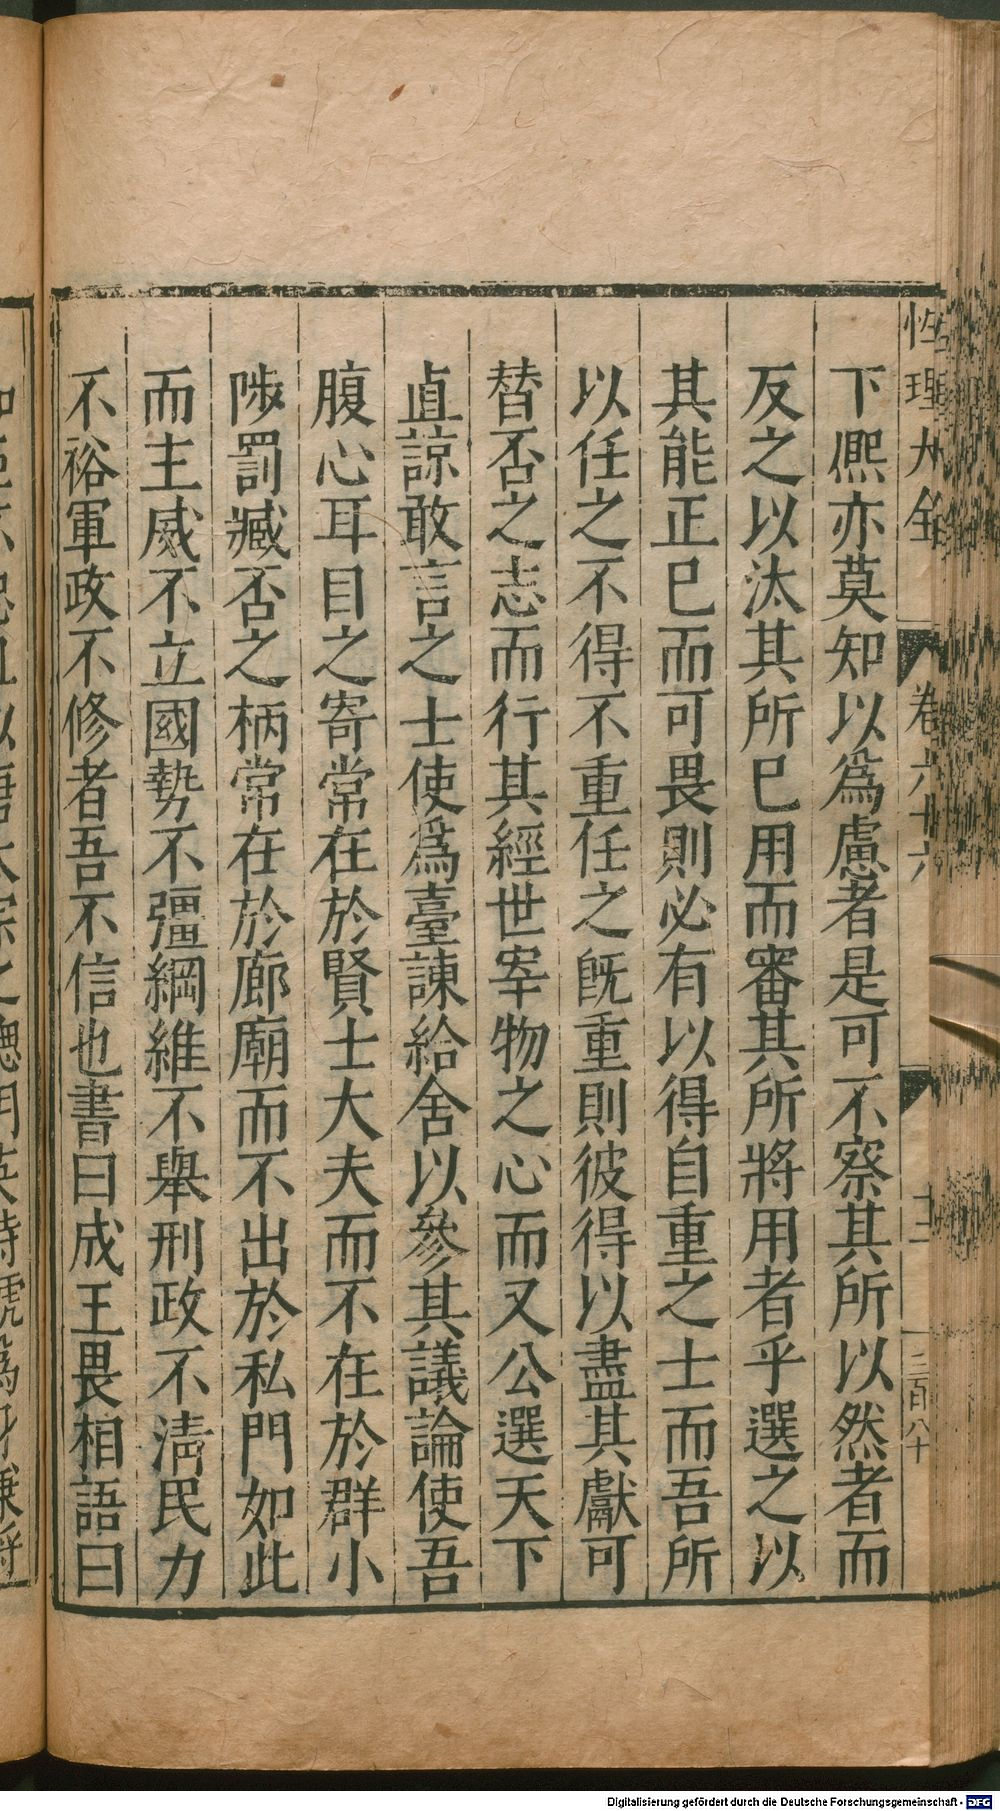 性理大全
卷六十六
三百八十
下熈亦莫知以爲慮者是可不察其所以然者而
反之以汰其所已用而審其所將用者乎選之以
其能正已而可畏則必有以得自重之士而吾所
以任之不得不重任之旣重則彼得以盡其獻可
替否之志而行其經世宰物之心而又公選天下
直諒敢言之士使爲臺諫給舍以參其議論使吾
腹心耳目之寄常在於賢士大夫而不在於群小
陟罰臧否之柄常在於廊廟而不出於私門如此
而主威不立國勢不彊綱維不舉刑政不淸民力
不裕軍政不修者吾不信也書曰成王畏相語曰
Digitalisierung gefördert durch die Deutsche Forschungsgemeinschaft - DFG